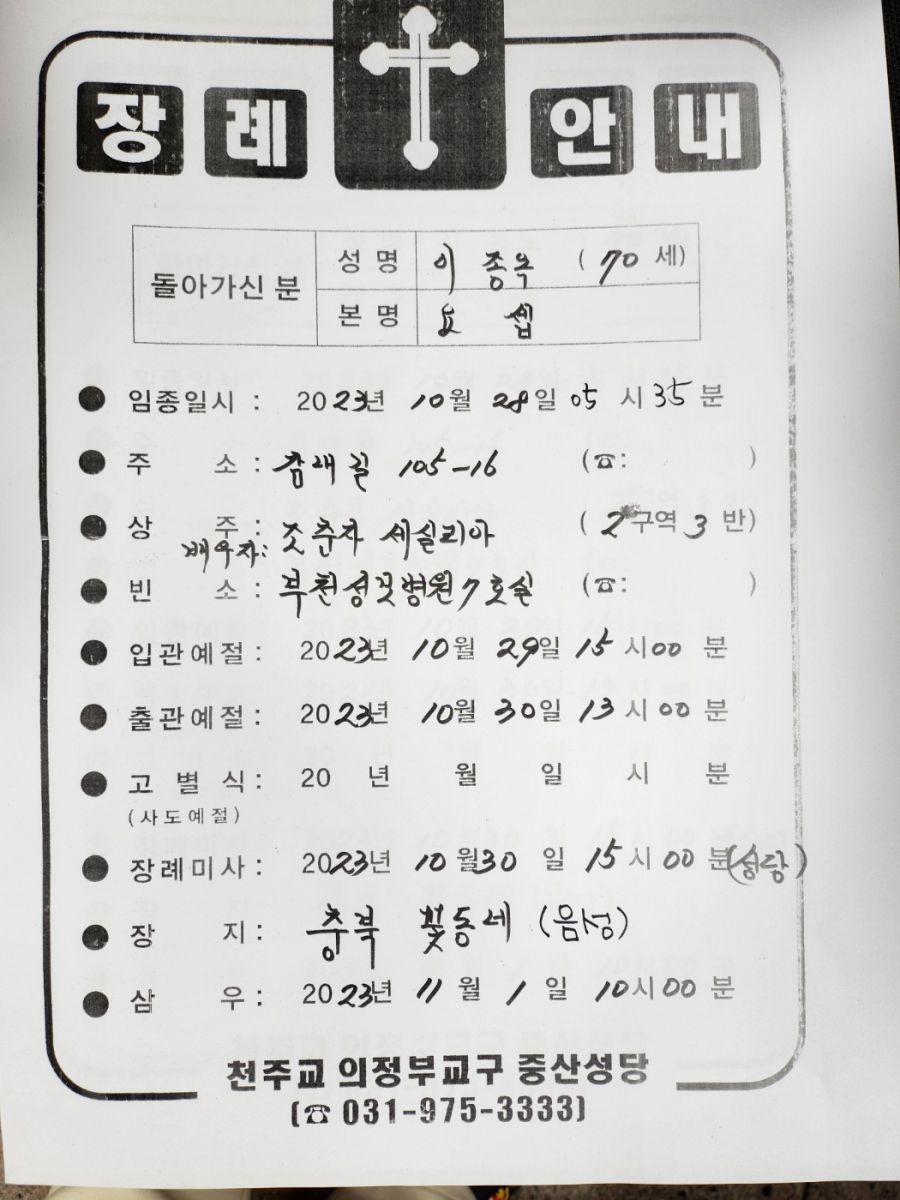 장례 안내
돌아가신 분
성명 이종옥 (70세)
본명 요셉
● 임종일시 : 2023년 10월 28일 05시 35분
● 주 소 : 참새길 105-16 (☎: )
● 상 주 : (2구역 3반)
배우자: 조춘자 세실리아
● 빈 소 : 부천성모병원 7호실 (☎: )
● 입관예절 : 2023년 10월 29일 15시 00분
● 출관예절 : 2023년 10월 30일 13시 00분
● 고별식 : 20 년 월 일 시 분
(사도예절)
● 장례미사 : 2023년 10월 30일 15시 00분 (성당)
● 장 지 : 충북 꽃동네 (음성)
● 삼 우 : 2023년 11월 1일 10시 00분
천주교 의정부교구 중산성당
(☎ 031-975-3333)